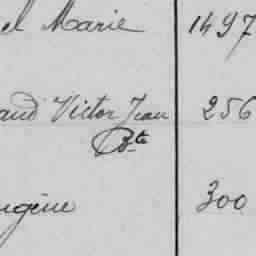 el Marie 1497
aud Victor Jean 256
Bte
ugène 300